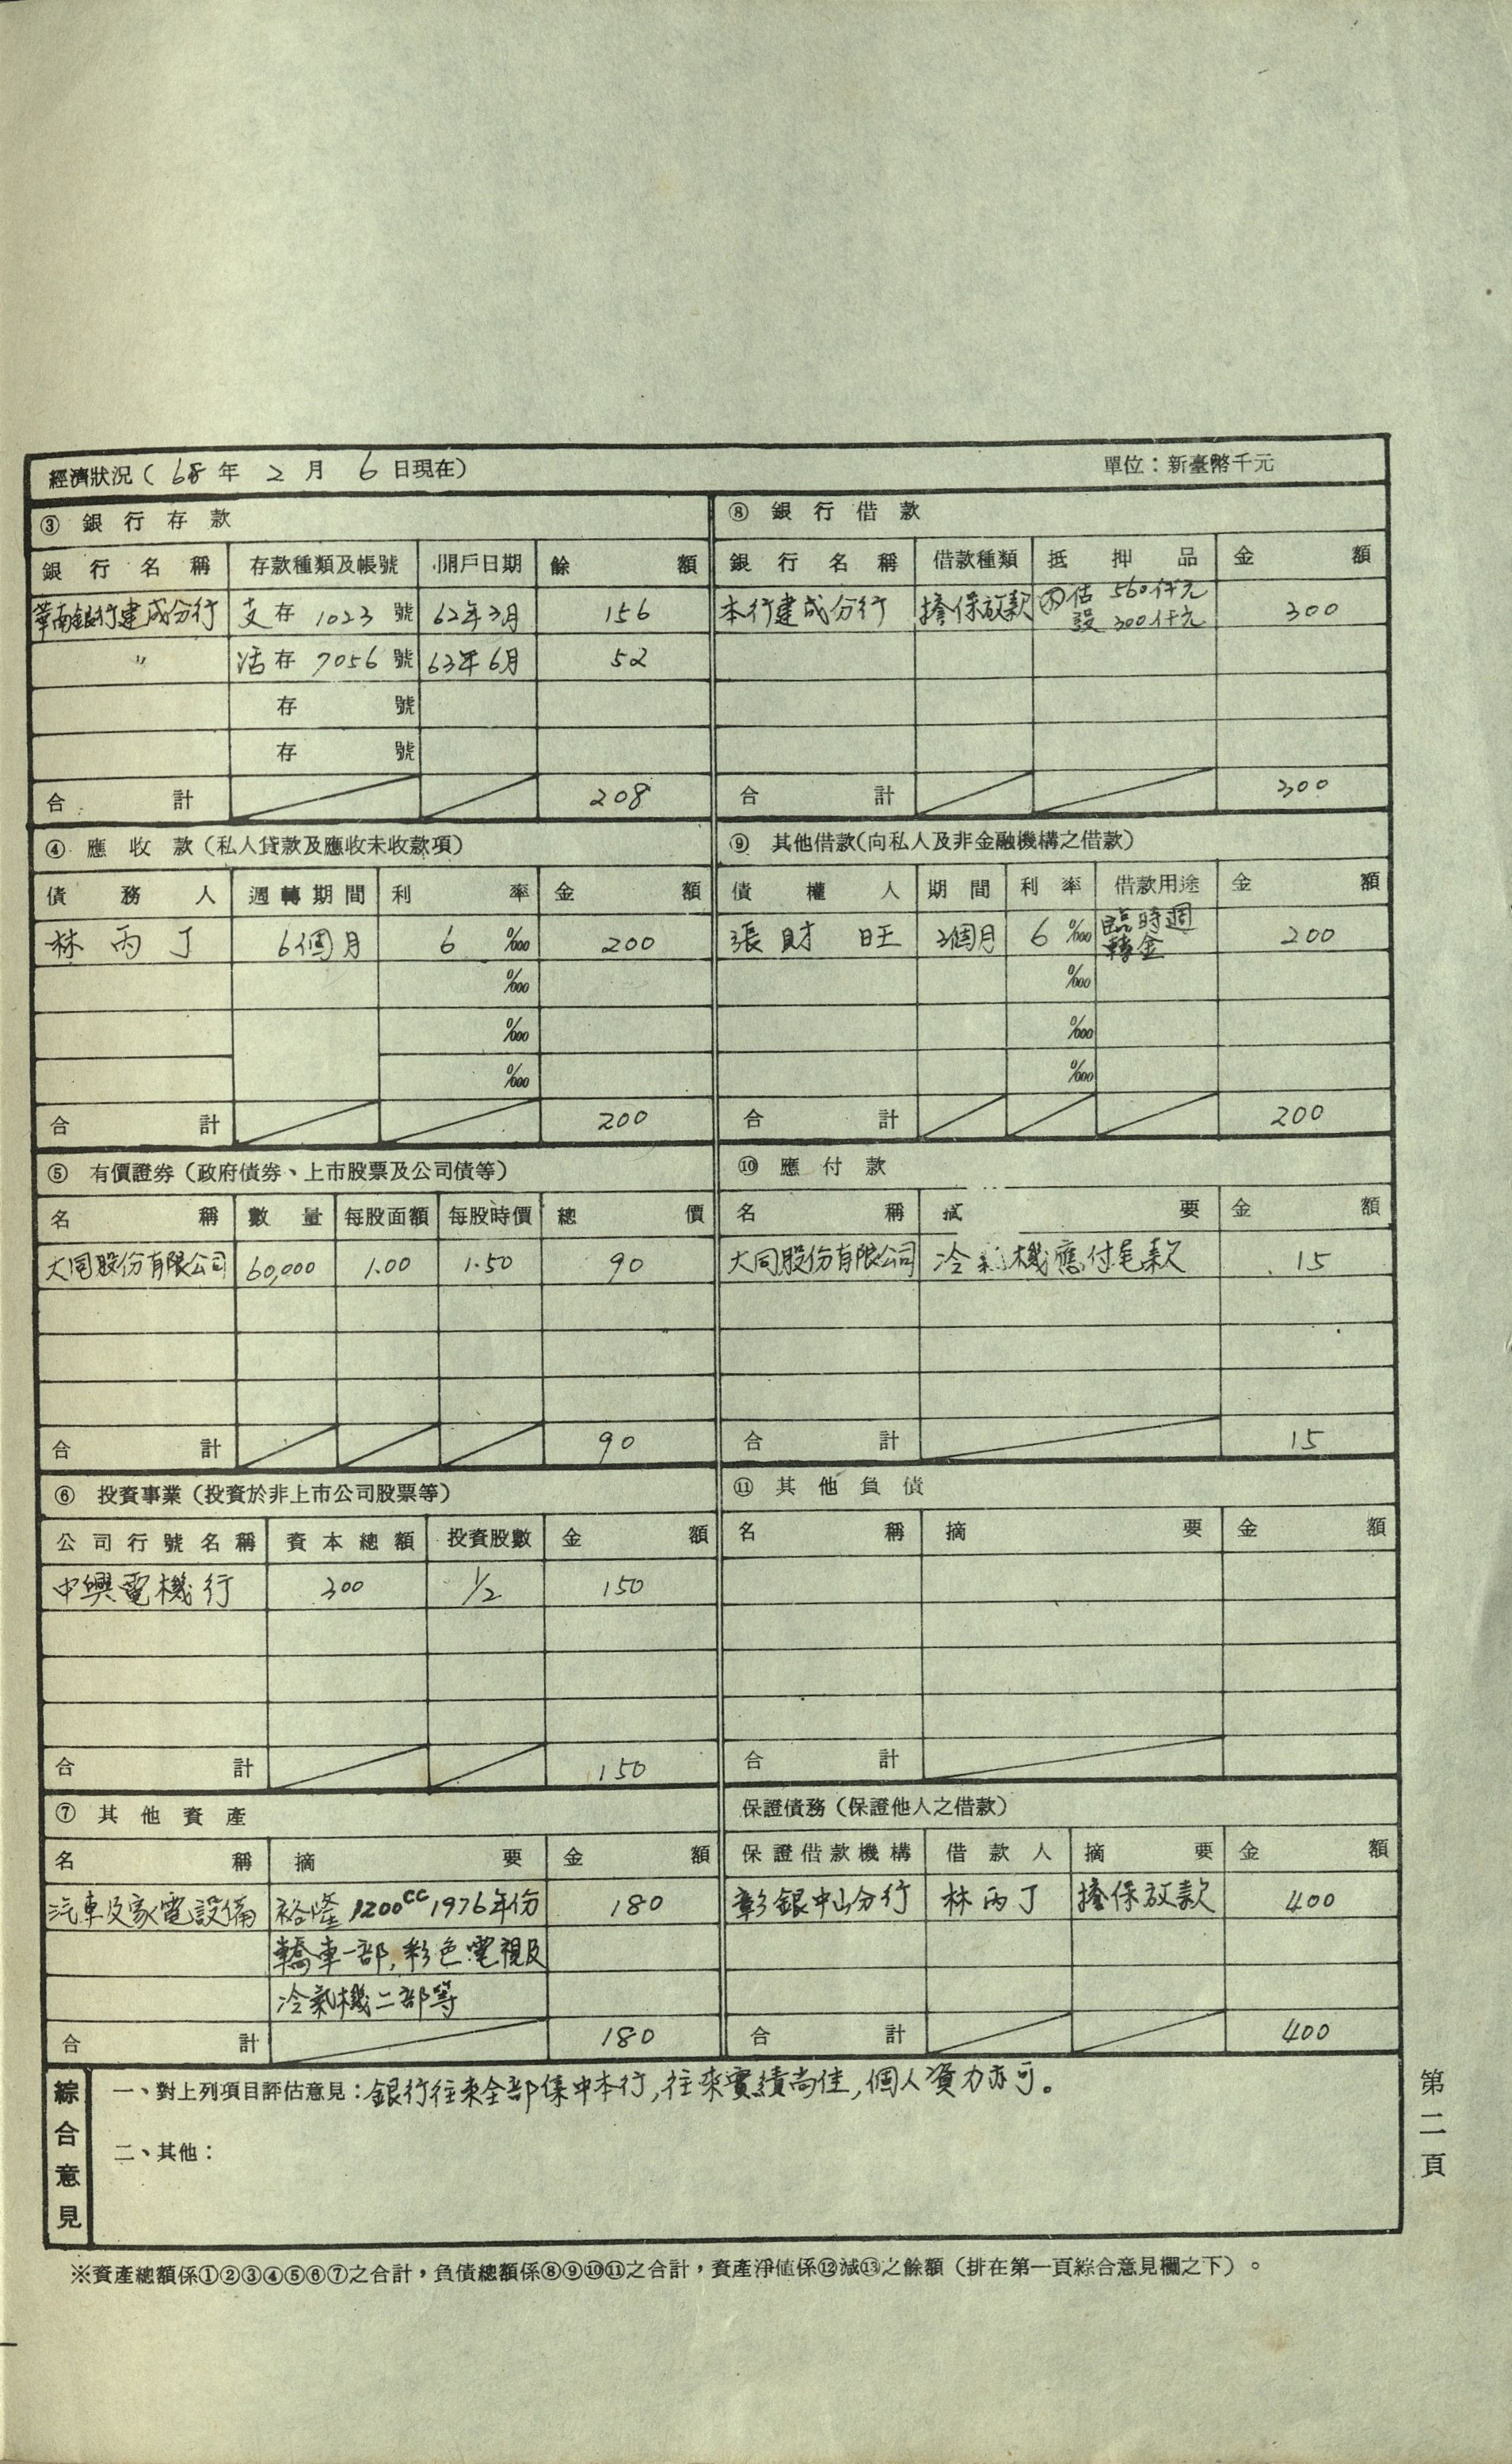 經濟狀況（68年2月6日現在） 單位：新臺幣千元
③ 銀行存款
銀行名稱 存款種類及帳號 開戶日期 餘額
華南銀行建成分行 支存1023號 62年3月 156
〃 活存7056號 63年6月 52
存 號
存 號
合計 208
⑧ 銀行借款
銀行名稱 借款種類 抵押品 金額
本行建成分行 擔保放款 估560仟元 300
設300仟元
合計 300
④ 應收款（私人貸款及應收未收款項）
債務人 週轉期間 利率 金額
林丙丁 6個月 6 ‱ 200
‱
‱
‱
合計 200
⑨ 其他借款（向私人及非金融機構之借款）
債權人 期間 利率 借款用途 金額
張財旺 3個月 6 ‱ 臨時週 200
轉金
‱
‱
‱
合計 200
⑤ 有價證券（政府債券、上市股票及公司債等）
名稱 數量 每股面額 每股時價 總價
大同股份有限公司 60,000 1.00 1.50 90
合計 90
⑩ 應付款
名稱 要 金額
大同股份有限公司 冷氣機應付尾款 15
合計 15
⑥ 投資事業（投資於非上市公司股票等）
公司行號名稱 資本總額 投資股數 金額
中興電機行 300 1/2 150
合計 150
⑪ 其他負債
名稱 摘要 金額
合計
⑦ 其他資產
名稱 摘要 金額
汽車及家電設備 裕隆1200cc1976年份 180
轎車一部,彩色電視及
冷氣機二部等
合計 180
保證債務（保證他人之借款）
保證借款機構 借款人 摘要 金額
彰銀中山分行 林丙丁 擔保放款 400
合計 400
綜合意見
一、對上列項目評估意見：銀行往來全部集中本行,往來實績尚佳,個人資力亦可。
二、其他：
第二頁
※資產總額係①②③④⑤⑥⑦之合計，負債總額係⑧⑨⑩⑪之合計，資產淨值係⑫減⑬之餘額（排在第一頁綜合意見欄之下）。